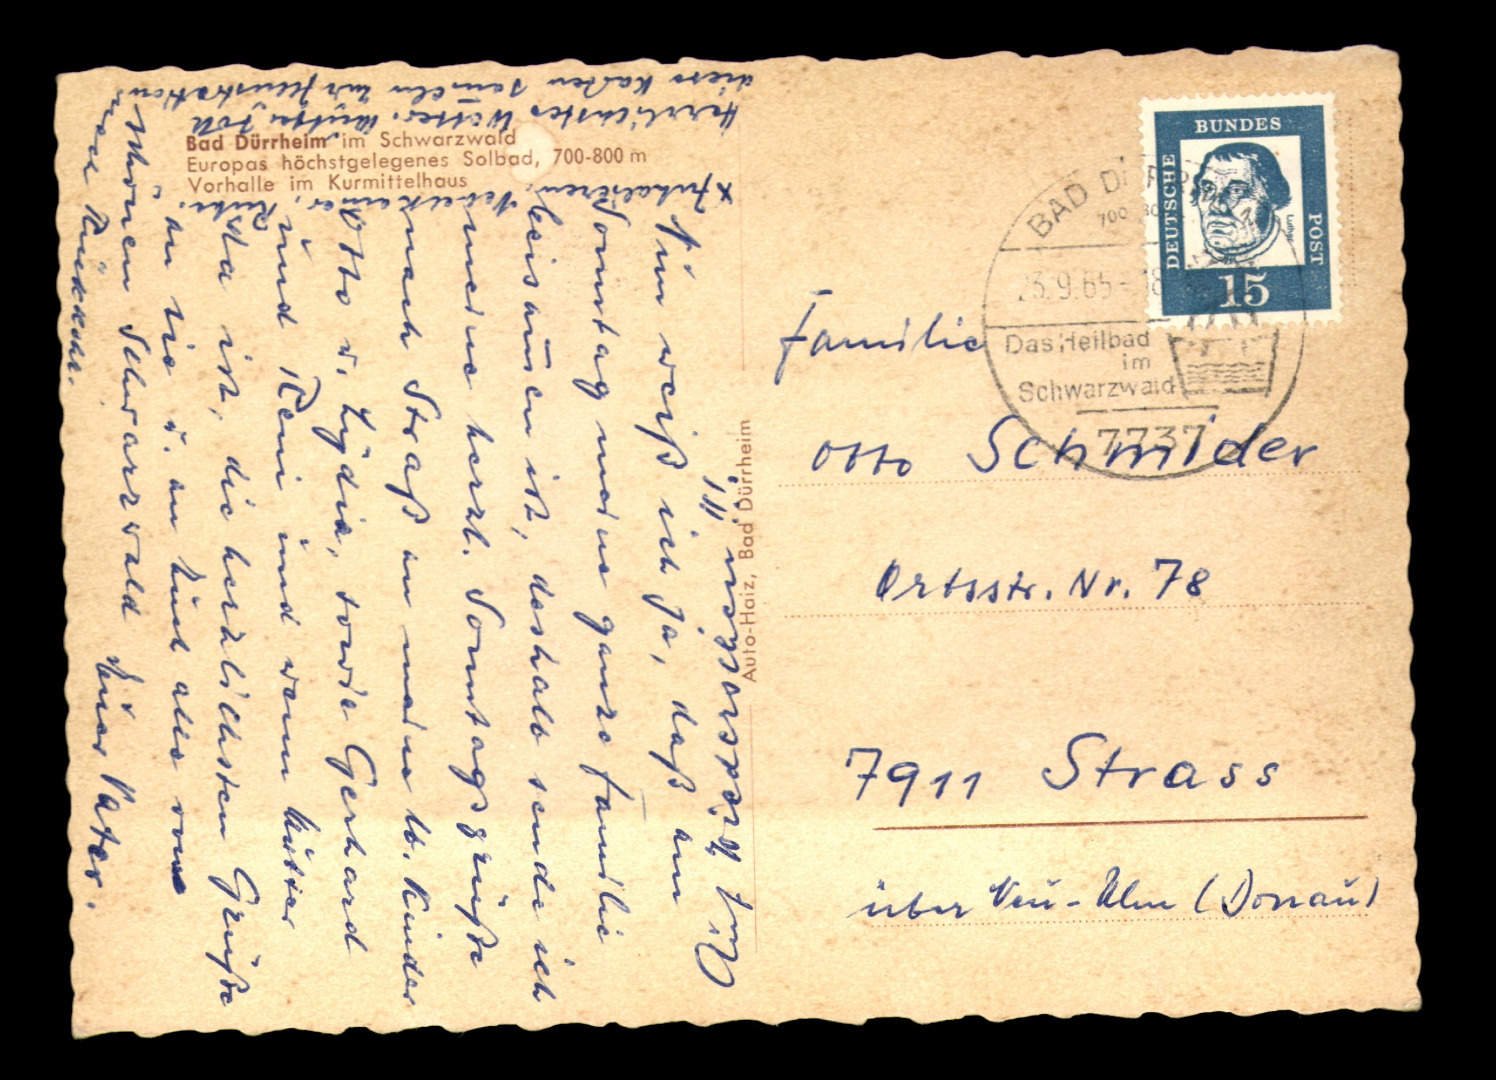 Bad Dürrheim im Schwarzwald
Europas höchstgelegenes Solbad, 700-800 m
Vorhalle im Kurmittelhaus
Nun weiß ich ja, daß am
Sonntag meine ganze Familie
beisamen ist, deshalb sende ich
meine herzl. Sonntagsgrüße
nach Straß an meine lb. Kinder
Otto u. Lydia, sowie Gerhard
und Reni und wenn
da ist, die herzlichsten Grüße
an sie u. an Euch alle vom
schönen Schwarzwald Euer Vater.
Herrlichstes Wetter.
Auto-Haiz, Bad Dürrheim
DEUTSCHE BUNDES POST
15
BAD DÜRRHEIM
23.9.65-18
Das Heilbad
im
Schwarzwald
7737
Familie
Otto Schmider
Ortsstr. Nr. 78
7911 Strass
über Neu-Ulm (Donau)